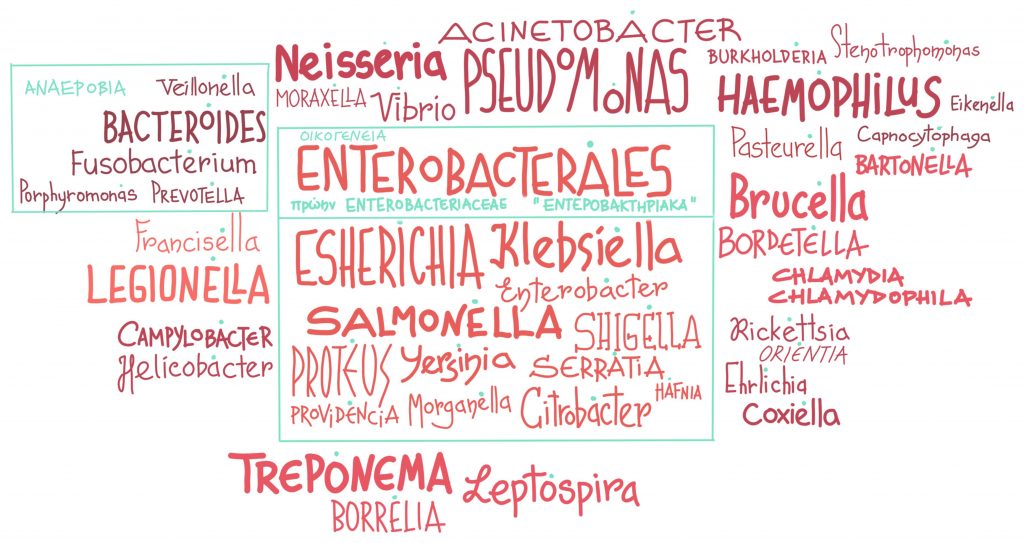 ΑΝΑΕΡΟΒΙΑ
Veillonella
BACTEROIDES
Fusobacterium
Porphyromonas PREVOTELLA
Francisella
LEGIONELLA
CAMPYLOBACTER
Helicobacter
ACINETOBACTER
Neisseria
PSEUDOMONAS
MORAXELLA
Vibrio
ΟΙΚΟΓΕΝΕΙΑ
ENTEROBACTERALES
πρώην ENTEROBACTERIACEAE "ΕΝΤΕΡΟΒΑΚΤΗΡΙΑΚΑ"
ESHERICHIA Klebsiella
Enterobacter
SALMONELLA SHIGELLA
PROTEUS Yersinia SERRATIA
HAFNIA
PROVIDENCIA Morganella Citrobacter
BURKHOLDERIA Stenotrophomonas
HAEMOPHILUS Eikenella
Pasteurella Capnocytophaga
BARTONELLA
Brucella
BORDETELLA
CHLAMYDIA
CHLAMYDOPHILA
Rickettsia
ORIENTIA
Ehrlichia
Coxiella
TREPONEMA Leptospira
BORRELIA